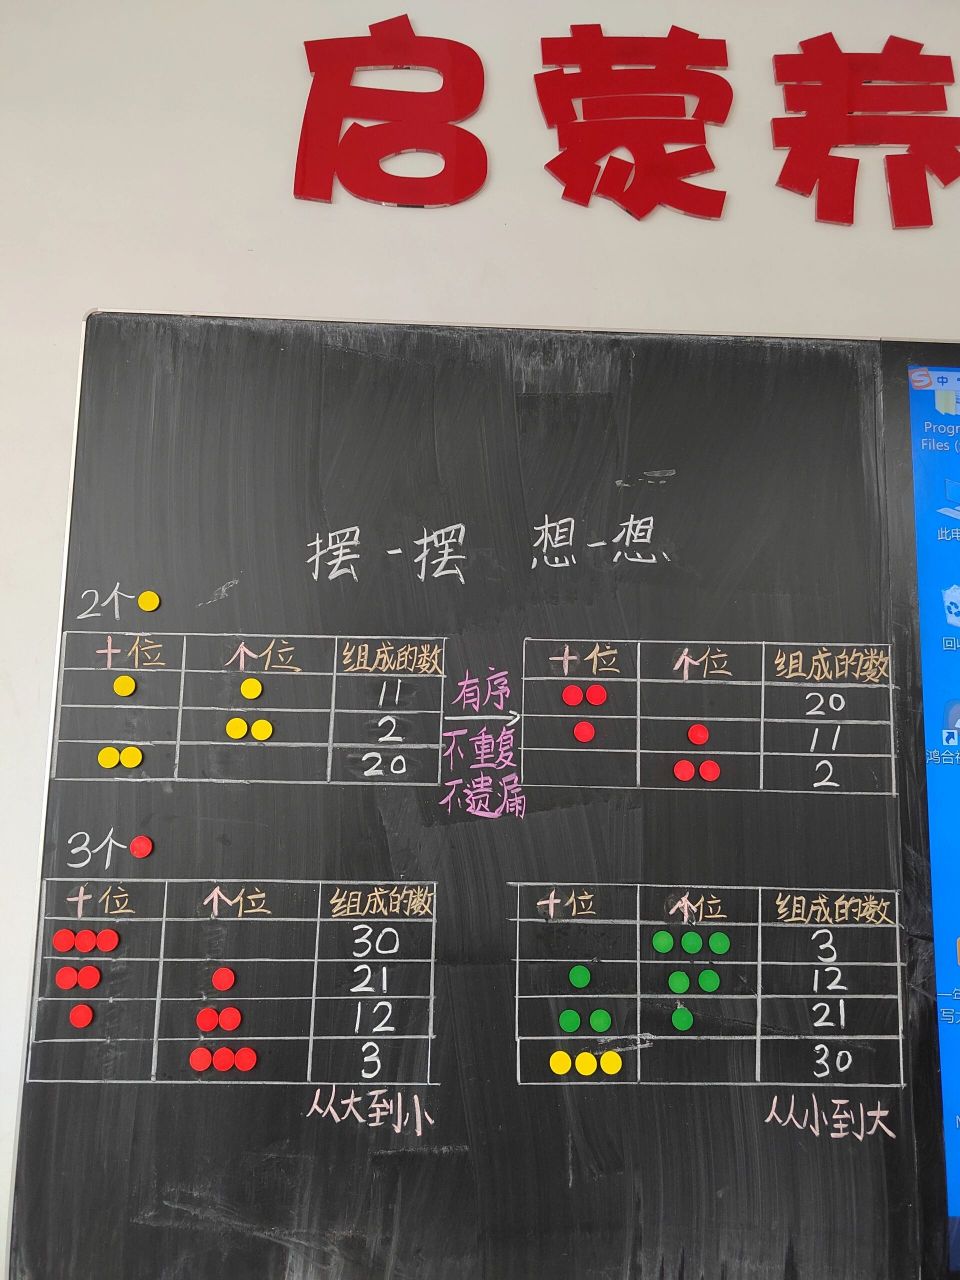 启蒙养
摆一摆 想一想
2个
十位 个位 组成的数
11
2
20
有序
不重复
不遗漏
十位 个位 组成的数
20
11
2
3个
十位 个位 组成的数
30
21
12
3
从大到小
十位 个位 组成的数
3
12
21
30
从小到大
中
Progr
Files (
此电
回收
鸿合视
一年
写大